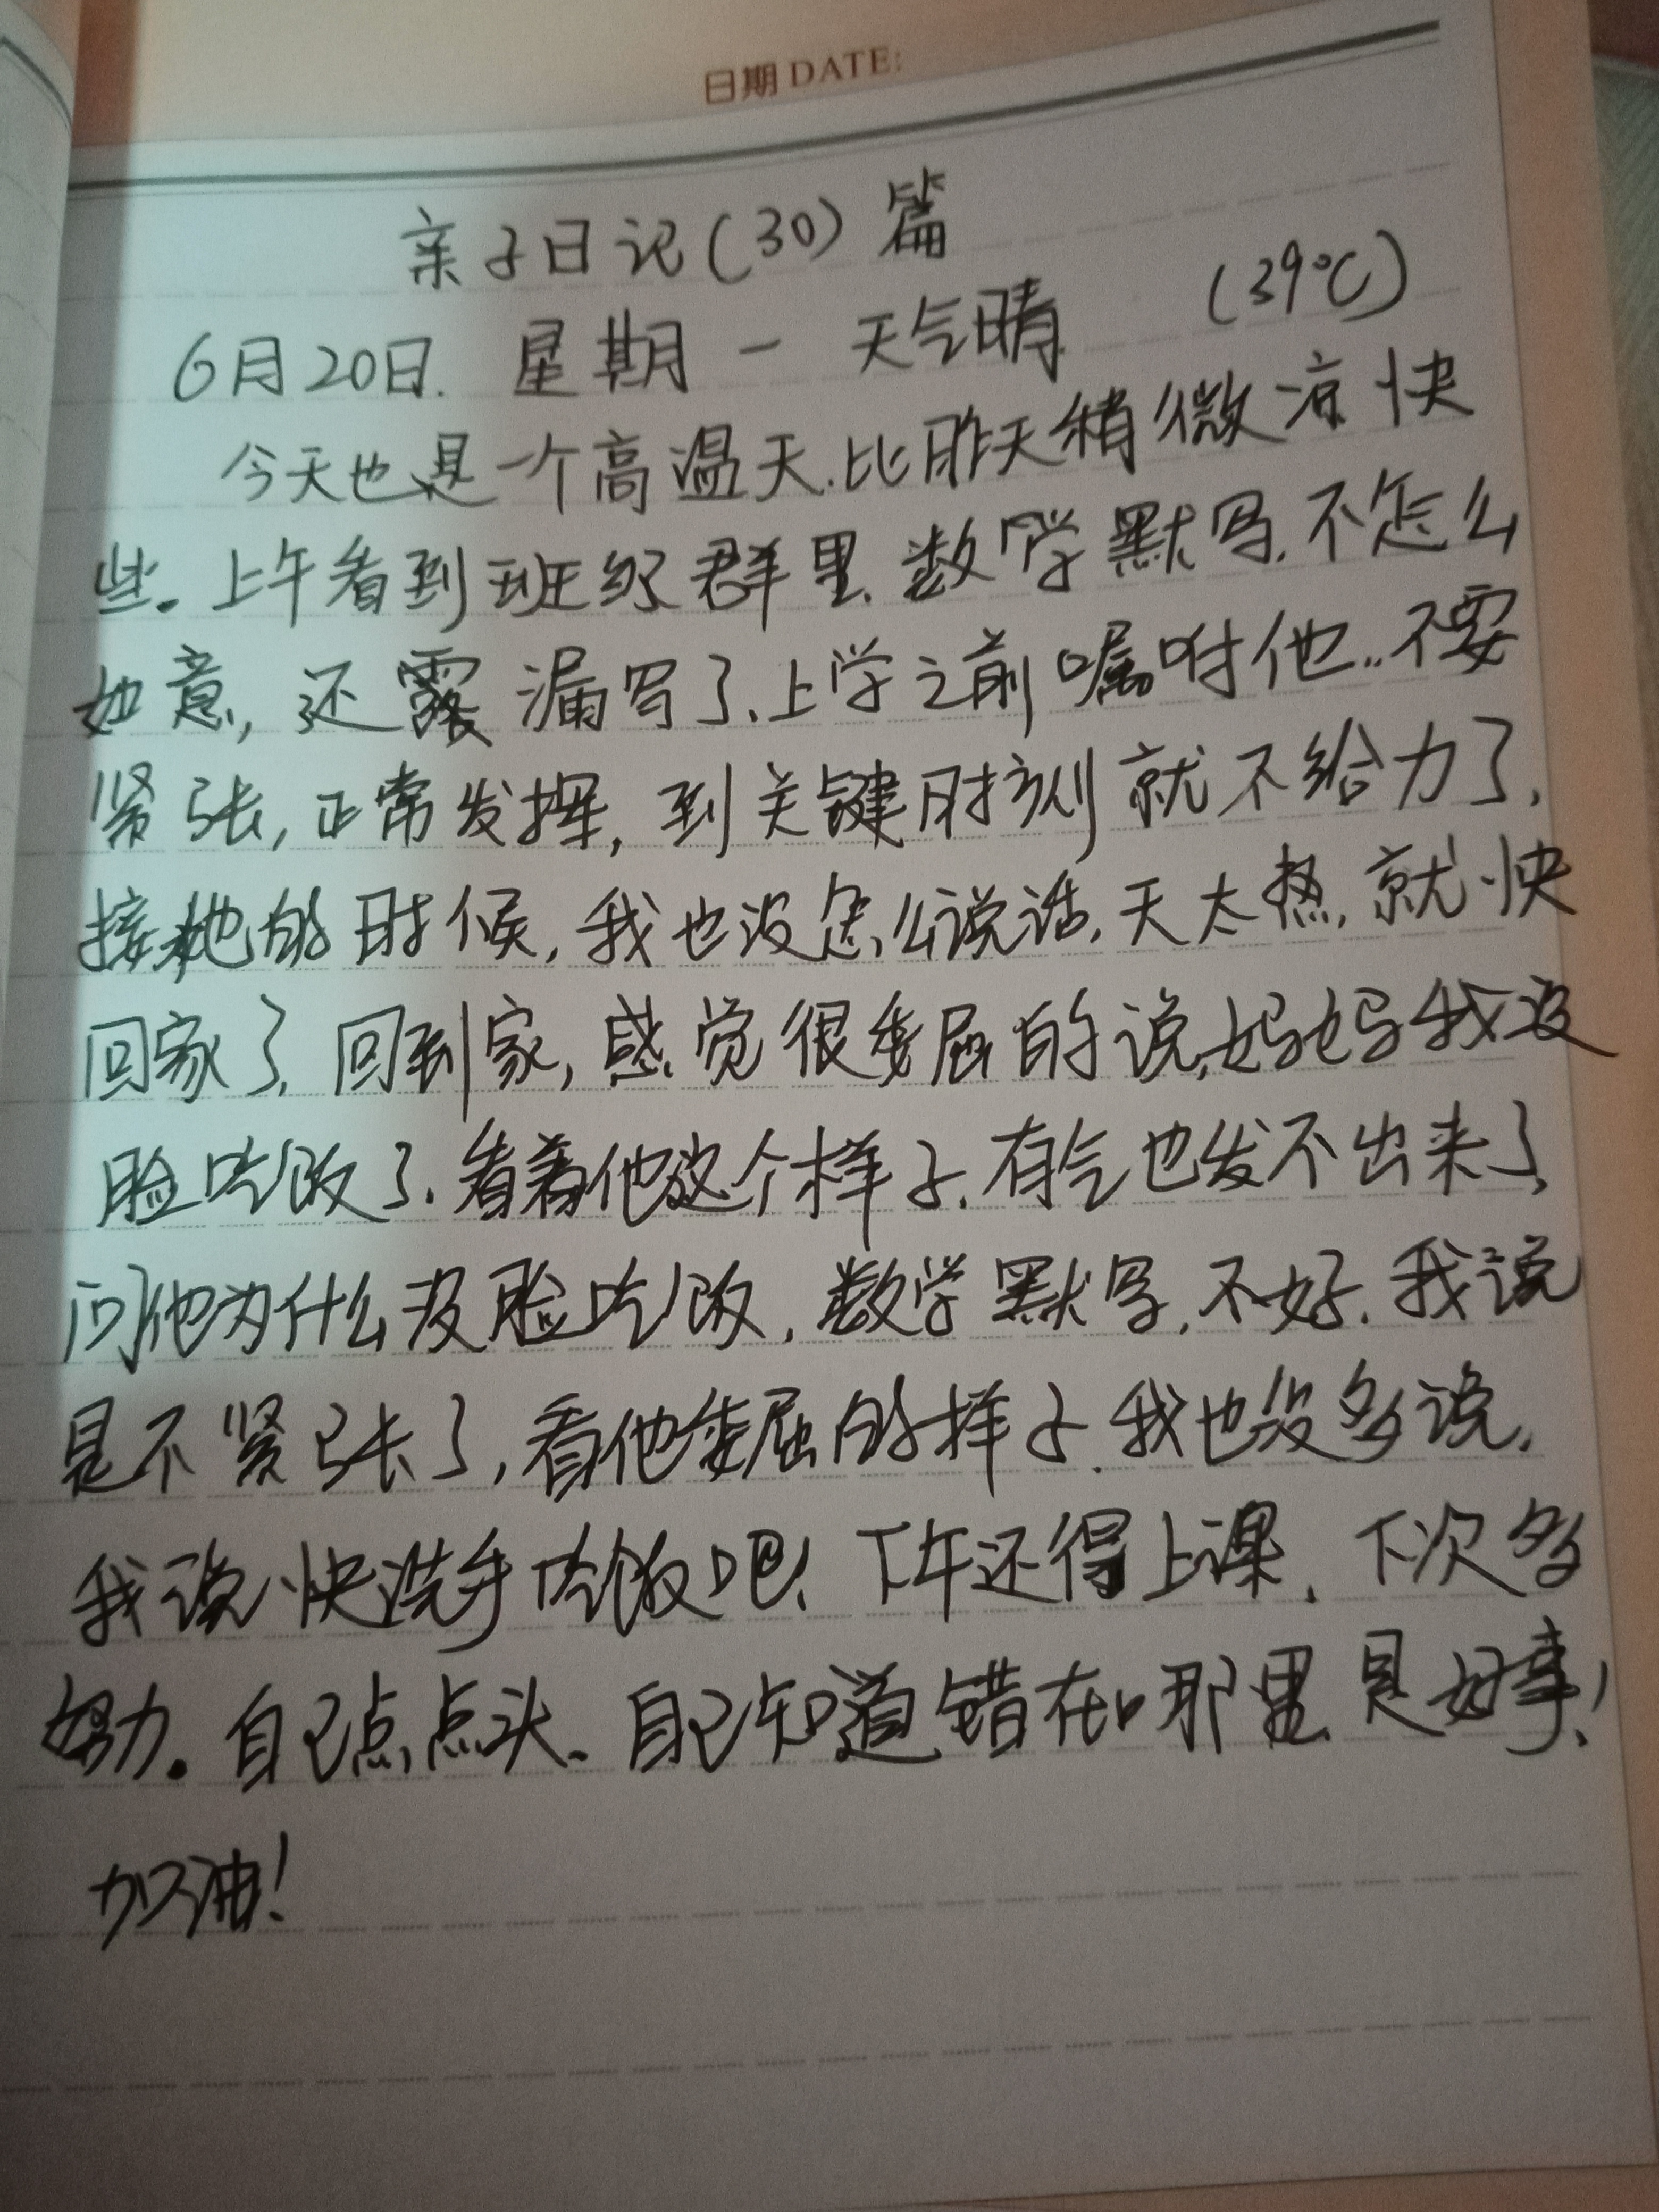 日期 DATE:
亲子日记(30)篇
6月20日. 星期一 天气晴 (39℃)
今天也是一个高温天.比昨天稍微凉快
些。上午看到班级群里.数学默写.不怎么
如意,还露漏写了.上学之前嘱咐他..不要
紧张,正常发挥,到关键时刻就不给力了.
接她的时候,我也没怎么说话.天太热,就快
回家了.回到家,感觉很委屈的说,妈妈我没
脸吃饭了.看着他这个样子.有气也发不出来了.
问他为什么没脸吃饭,数学默写,不好.我说
是不紧张了,看他委屈的样子.我也没多说.
我说快洗手吃饭吧!下午还得上课.下次多
努力。自己点点头.自己知道错在哪里是好事!
加油!